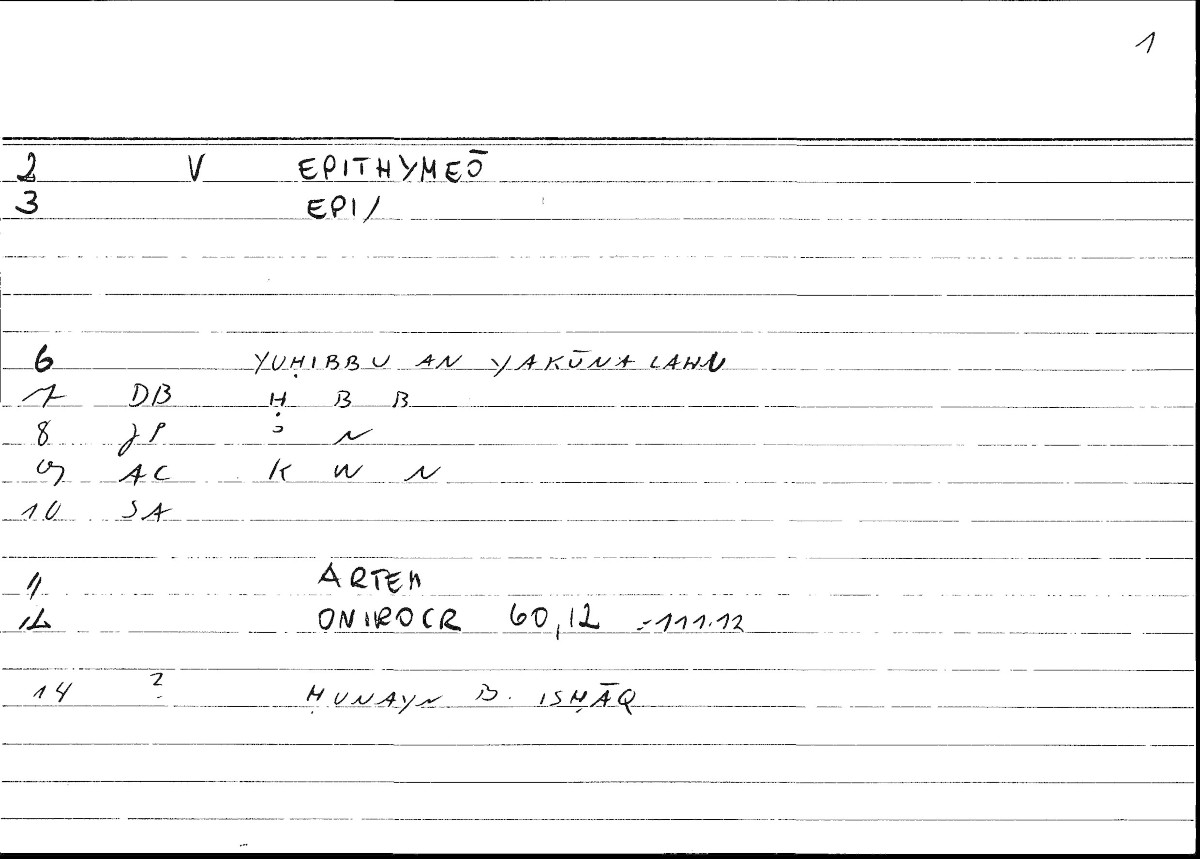 1
2 V EPITHYMEŌ
3 EPI/
6 YUḤIBBU AN YAKŪNA LAHU
7 DB Ḥ B B
8 JP ʾ N
9 AC K W N
10 SA
11 ARTEM
12 ONIROCR 60,12 =111.12
14 ? ḤUNAYN B. ISḤĀQ